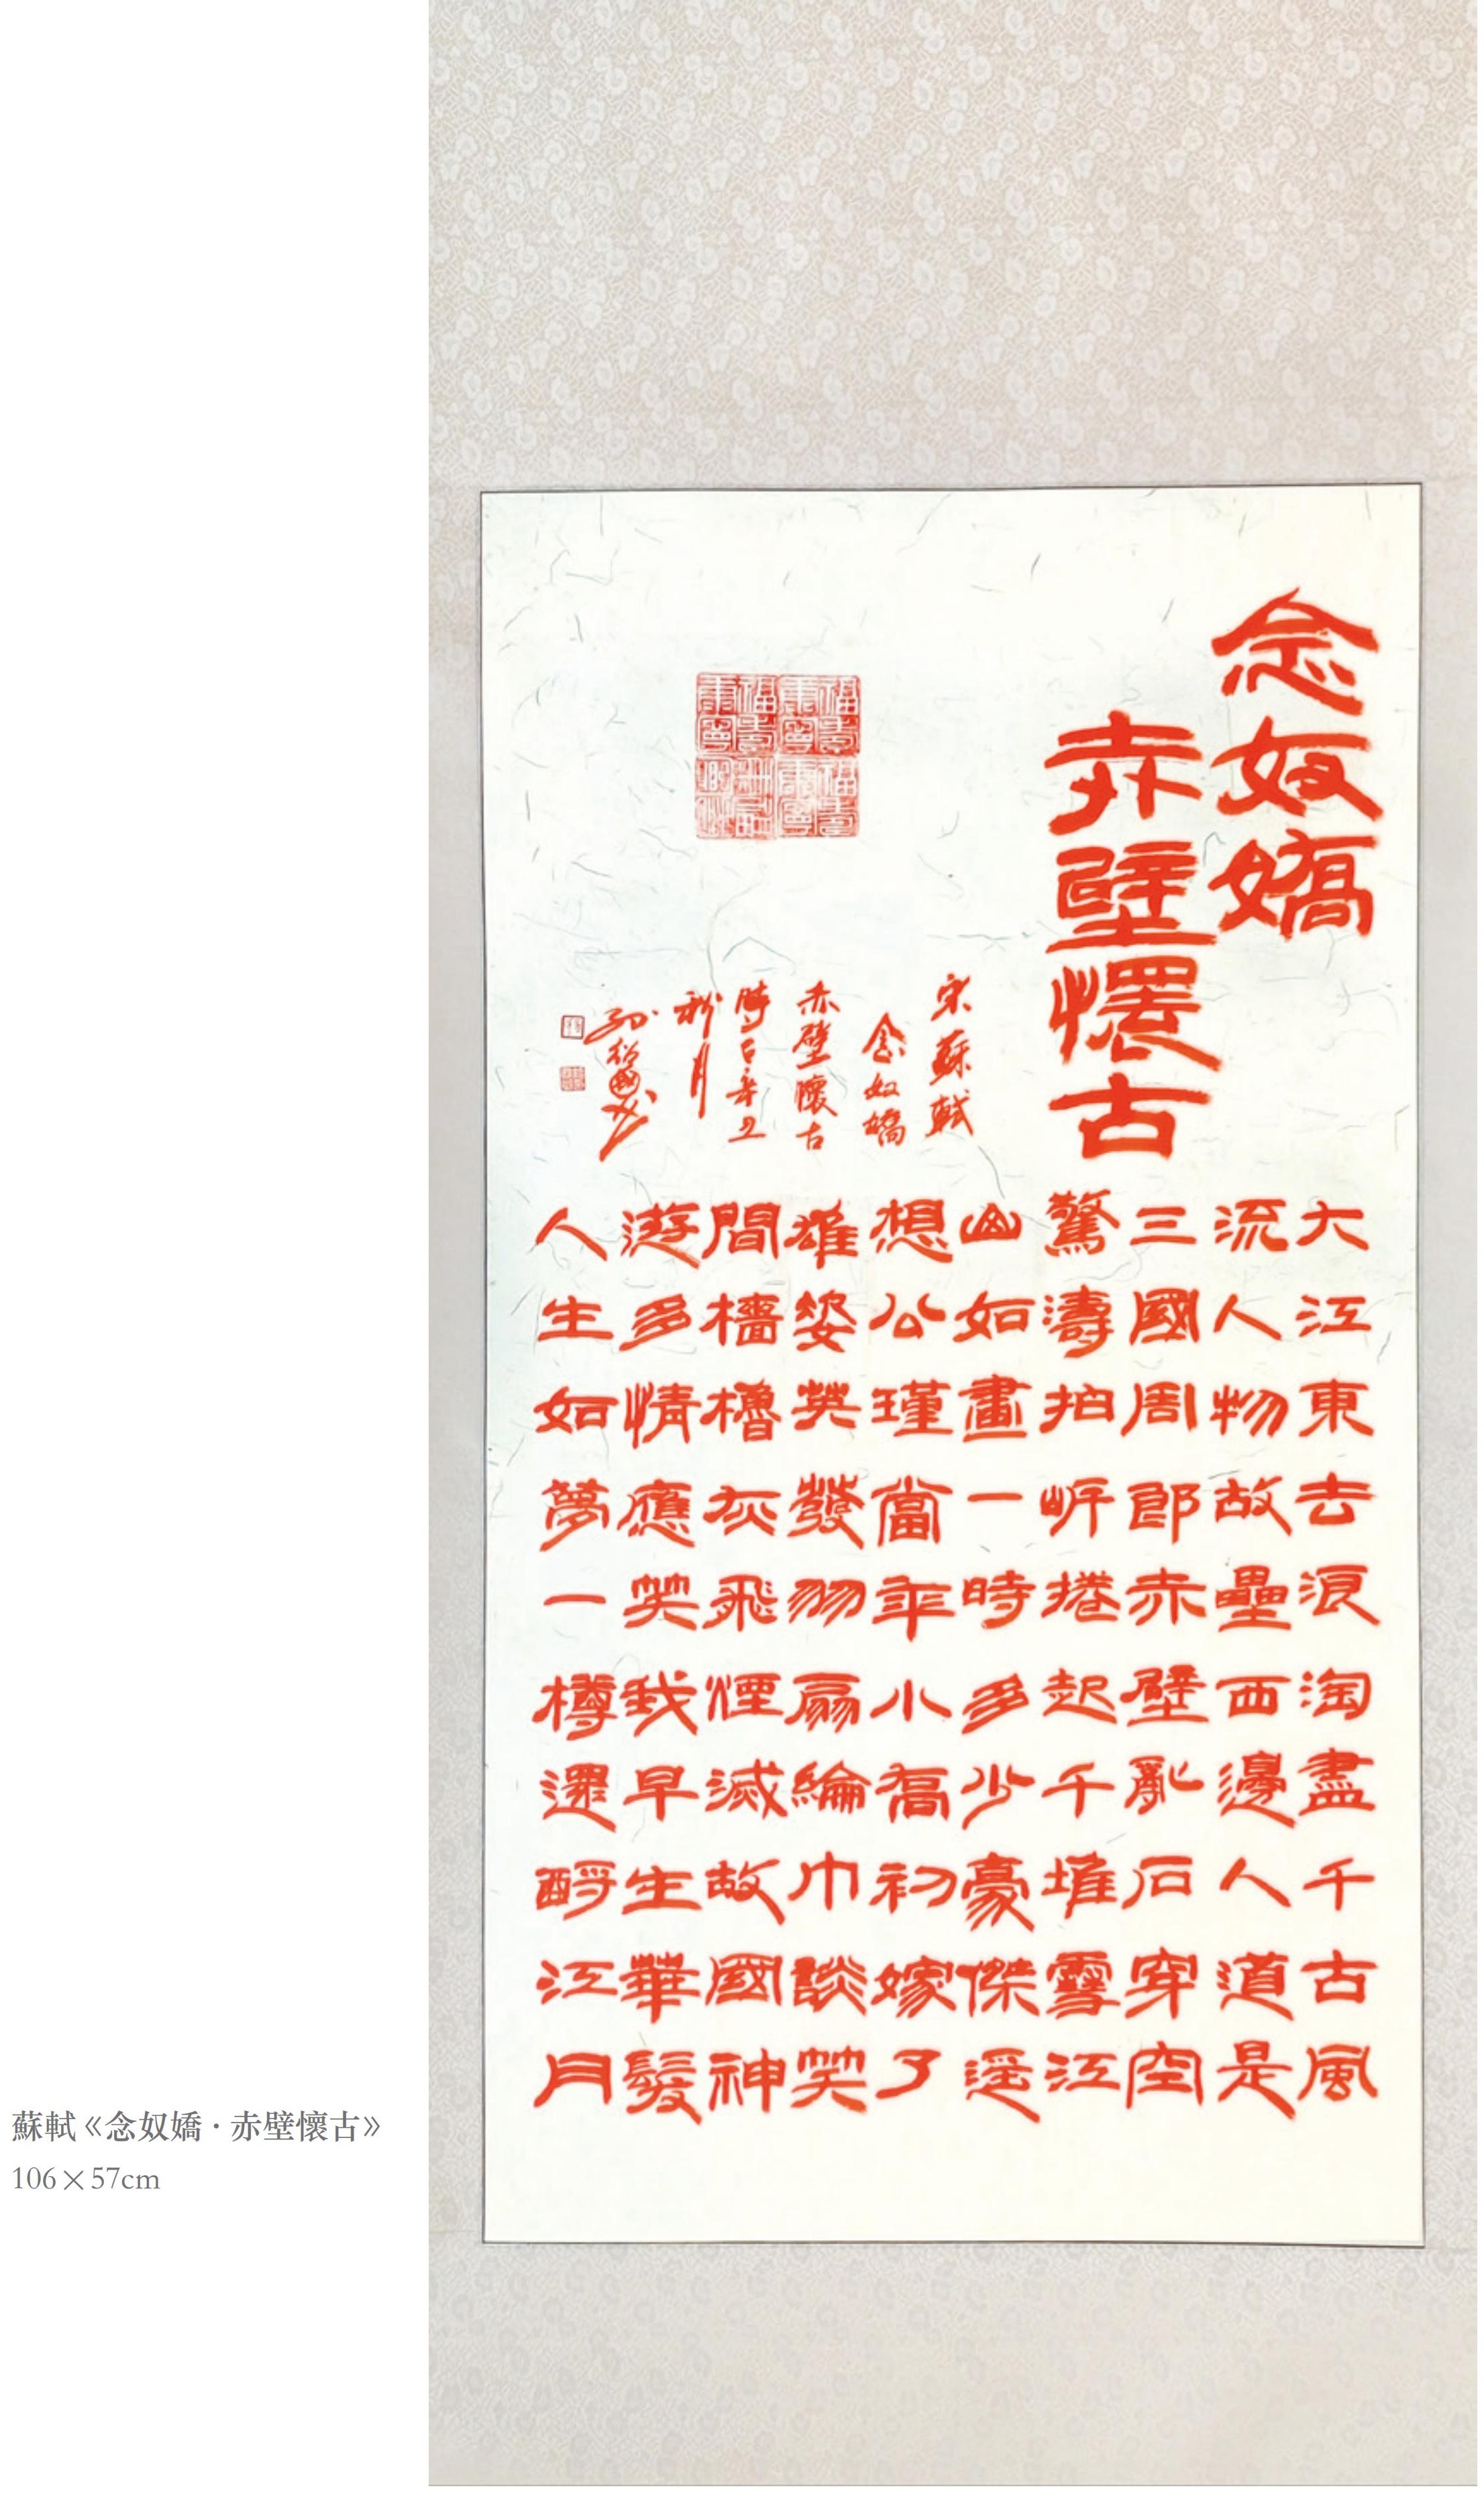 念奴嬌
赤壁懷古
大江東去浪淘盡千古風
流人物故壘西邊人道是
三國周郎赤壁亂石穿空
驚濤拍岸捲起千堆雪江
山如畫一時多少豪傑遥
想公瑾當年小喬初嫁了
雄姿英發羽扇綸巾談笑
間檣櫓灰飛煙滅故國神
遊多情應笑我早生華髮
人生如夢一樽還酹江月
宋蘇軾
念奴嬌
赤壁懷古
時辛丑
秋月
蘇軾《念奴嬌·赤壁懷古》
106×57cm